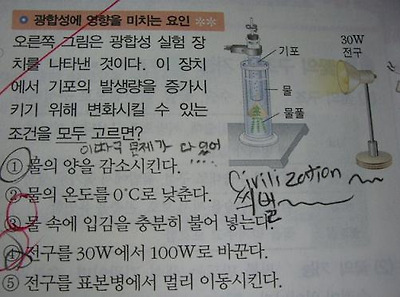 광합성에 영향을 미치는 요인 **
오른쪽 그림은 광합성 실험 장
치를 나타낸 것이다. 이 장치
에서 기포의 발생량을 증가시
키기 위해 변화시킬 수 있는
조건을 모두 고르면?
기포
물
물풀
30W
전구
문제가 다 있어
① 물의 양을 감소시킨다.
② 물의 온도를 0℃로 낮춘다.
③ 물 속에 입김을 충분히 불어 넣는다.
④ 전구를 30W에서 100W로 바꾼다.
⑤ 전구를 표본병에서 멀리 이동시킨다.
Civilization
씨발